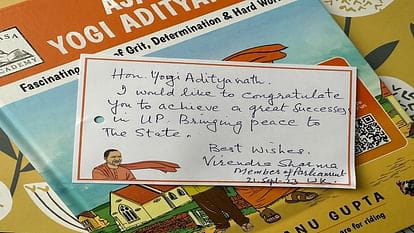 ASA
ACADEMY
YOGI ADITYA
Fascinating of Grit, Determination & Hard Wor
Hon Yogi Adityanath.
I would like to congratulate
you to achieve a great successes
in U.P. Bringing peace to
The State.
Best Wishes.
Virendra Sharma
Member of Parliament
21. Sept. 23 U.K.
ANU GUPTA
are for riding